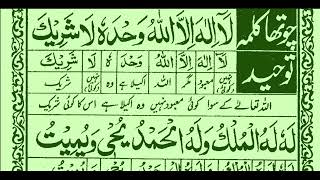 چوتھا کلمہ
توحید
لَآ اِلٰهَ اِلَّا اللّٰهُ وَحْدَهٗ لَا شَرِيْكَ
لَآ اِلٰهَ اِلَّا اللّٰهُ وَحْدَهٗ لَا شَرِيْكَ
نہیں کوئی معبود مگر اللہ اکیلا ہے وہ نہیں کوئی شریک
اللہ تعالےٰ کے سوا کوئی معبود نہیں وہ اکیلا ہے اس کا کوئی شریک
لَهٗ لَهُ الْمُلْكُ وَلَهُ الْحَمْدُ يُحْيٖ وَيُمِيْتُ